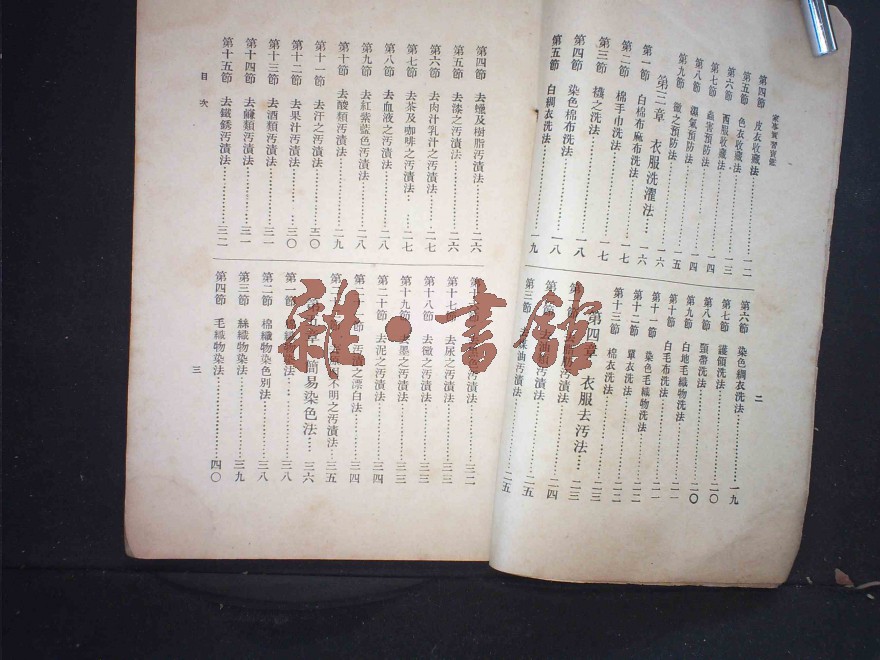 家事實習寶鑑
二
第四節 皮衣收藏法 一二
第五節 色衣收藏法 一三
第六節 西服收藏法 一三
第七節 蟲害預防法 一四
第八節 濕氣預防法 一四
第九節 黴之預防法 一五
第三章 衣服洗濯法 一六
第一節 白棉布麻布洗法 一六
第二節 棉手巾洗法 一七
第三節 襪之洗法 一七
第四節 染色棉布洗法 一八
第五節 白稠衣洗法 一九
第六節 染色稠衣洗法 一九
第七節 護領洗法 二〇
第八節 頸帶洗法 二〇
第九節 白地毛織物洗法 二一
第十節 白毛布洗法 二一
第十一節 染色毛織物洗法 二一
第十二節 單衣洗法 二二
第十三節 棉衣洗法 二三
第四章 衣服去汚法 二三
汚漬法 二四
第三節 油汚漬法 二五
第四節 去蠟及樹脂汚漬法 二六
第五節 去漆之汚漬法 二六
第六節 去肉汁乳汁之汚漬法 二七
第七節 去茶及咖啡之汚漬法 二七
第八節 去血液之汚漬法 二八
第九節 去紅紫藍色汚漬法 二八
第十節 去酸類汚漬法 二九
第十一節 去汗之汚漬法 三〇
第十二節 去果汁汚漬法 三〇
第十三節 去酒類汚漬法 三一
第十四節 去鹼類汚漬法 三一
第十五節 去鐵銹汚漬法 三二
第十七節 去尿之汚漬法 三三
第十八節 去黴之汚漬法 三三
第十九節 去墨之汚漬法 三三
第二十節 去泥之汚漬法 三四
汚漬之漂白法 三四
不明之汚漬法 三五
第五章 簡易染色法 三六
第一節 織物染法 三八
第二節 棉織物染色別法 三八
第三節 絲織物染法 三九
第四節 毛織物染法 四〇
目次
三
雜·書館